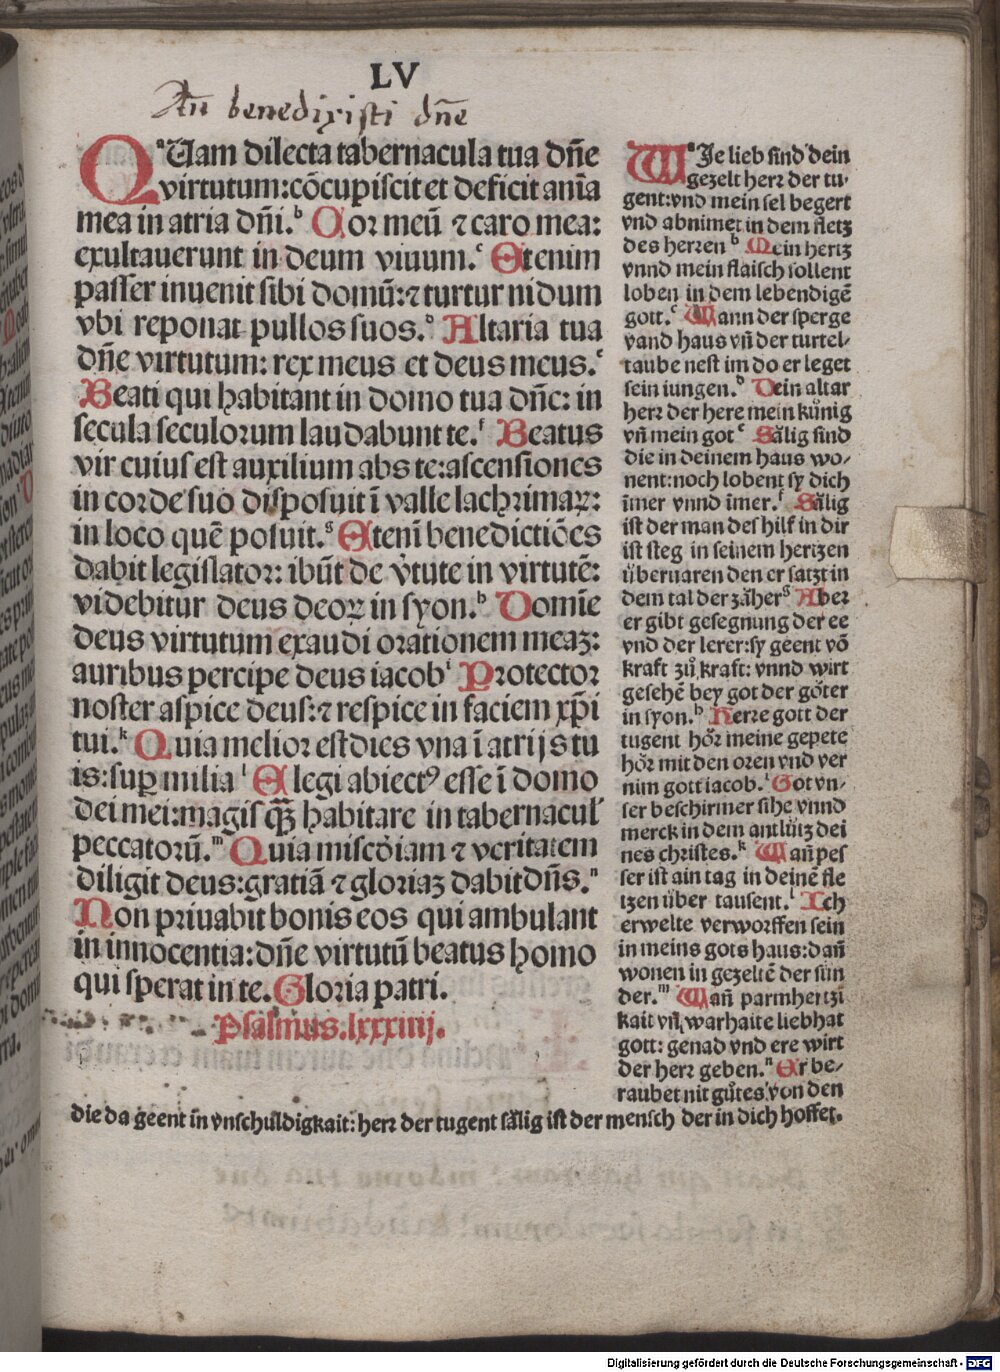 LV
An benedixisti dñe
Quam dilecta tabernacula tua dñe
virtutum:cōcupiscit et deficit anīa
mea in atria dñi.ᵇ Cor meū ⁊ caro mea:
exultauerunt in deum viuum.ᶜ Etenim
passer inuenit sibi domū:⁊ turtur nidum
vbi reponat pullos suos.ᵈ Altaria tua
dñe virtutum: rex meus et deus meus.ᵉ
Beati qui habitant in domo tua dñe: in
secula seculorum laudabunt te.ᶠ Beatus
vir cuius est auxilium abs te:ascensiones
in corde suo disposuit ī valle lachrimaꝝ:
in loco quē posuit.ᵍ Etenī benedictiōes
dabit legislator: ibūt de v̓tute in virtutē:
videbitur deus deoꝝ in syon.ʰ Domīe
deus virtutum exaudi orationem meaꝫ:
auribus percipe deus iacobⁱ Protector
noster aspice deus:⁊ respice in faciem xp̄i
tui.ᵏ Quia melior est dies vna ī atrijs tu
is:suꝑ milia ˡ Elegi abiectꝰ esse ī domo
dei mei:magis qȝ̄ habitare in tabernacul'
peccatorū.ᵐ Quia miscd̓iam ⁊ veritatem
diligit deus:gratiā ⁊ gloriaꝫ dabit dñs.ⁿ
Non priuabit bonis eos qui ambulant
in innocentia:dñe virtutū beatus homo
qui sperat in te. Gloria patri.
Psalmus.lxxxiiij.
WJe lieb sind dein
gezelt herr der tu-
gent:vnd mein sel begert
vnd abnimet in dem fletz
des herren ᵇ Mein hertz
vnnd mein flaisch sollent
loben in dem lebendigē
gott.ᶜ Wann der sperge
vand haus vñ der turtel-
taube nest im do er leget
sein iungen.ᵈ Dein altar
herr der here mein kůnig
vñ mein got ᵉ Sålig sind
die in deinem haus wo-
nent:noch lobent sy dich
īmer vnnd īmer.ᶠ Sålig
ist der man des hilf in dir
ist steg in seinem hertzen
übernaren den er satzt in
dem tal der zåherᵍ Aber
er gibt gesegnung der ee
vnd der lerer:sy geent vō
kraft zů kraft: vnnd wirt
gesehē bey got der göter
in syon.ʰ Herre gott der
tugent hör meine gepete
hör mit den oren vnd ver
nim gott iacob.ⁱ Got vn-
ser beschirmer sihe vnnd
merck in dem antlütz dei
nes christes.ᵏ Wañ pes
ser ist ain tag in deinē fle
tzen über tausent.ˡ Ich
erwelte verworffen sein
in meins gots haus:dañ
wonen in gezeltē der sün
der.ᵐ Wañ parmhertzi
kait vñ warhaite liebhat
gott: genad vnd ere wirt
der herr geben.ⁿ Er be-
raubet nit gůtes von den
die da geent in vnschuldigkait: herr der tugent sålig ist der mensch der in dich hoffet.
Digitalisierung gefördert durch die Deutsche Forschungsgemeinschaft - DFG